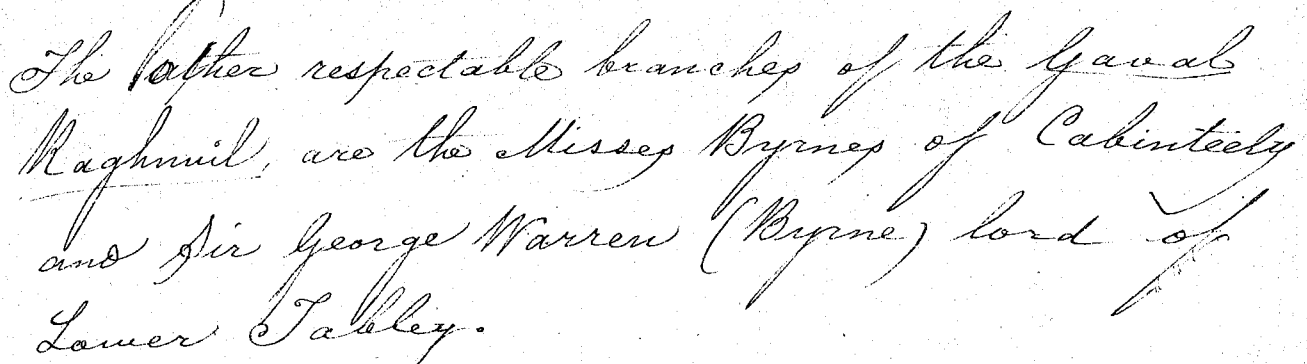 The other respectable branches of the Gaval
Raghnuil, are the Misses Byrnes of Cabinteely
and Sir George Warren (Byrne) lord of
Lower Tabley.